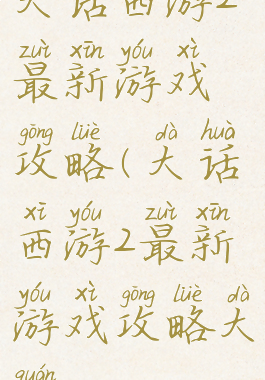 大话西游2
zuì xīn yóu xì
最新游戏
gōng lüè dà huà
攻略(大话
xī yóu zuì xīn
西游2最新
yóu xì gōng lüè dà
游戏攻略大
quán